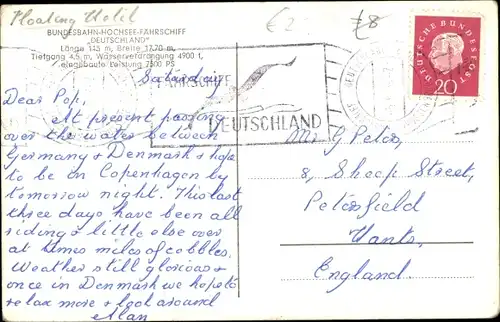 Floating Hotel
BUNDESBAHN-HOCHSEE-FÄHRSCHIFF
„DEUTSCHLAND"
Länge 145 m, Breite 17,70 m,
Tiefgang 4,5 m, Wasserverdrängung 4900 t,
eingebaute Leistung 7500 PS
Saturday
Dear Pop,
At present passing
over the water between
Germany & Denmark & hope
to be in Copenhagen by
tomorrow night. This last
three days have been all
riding & little else over
at times miles of cobbles.
Weather still glorious &
once in Denmark we hope to
relax more & look around
Alan
£2
£8
FÄHRSCHIFF
DEUTSCHLAND
DEUTSCHE BUNDESPOST
20
Mr G Peters,
8, Sheep Street,
Petersfield
Hants,
England.